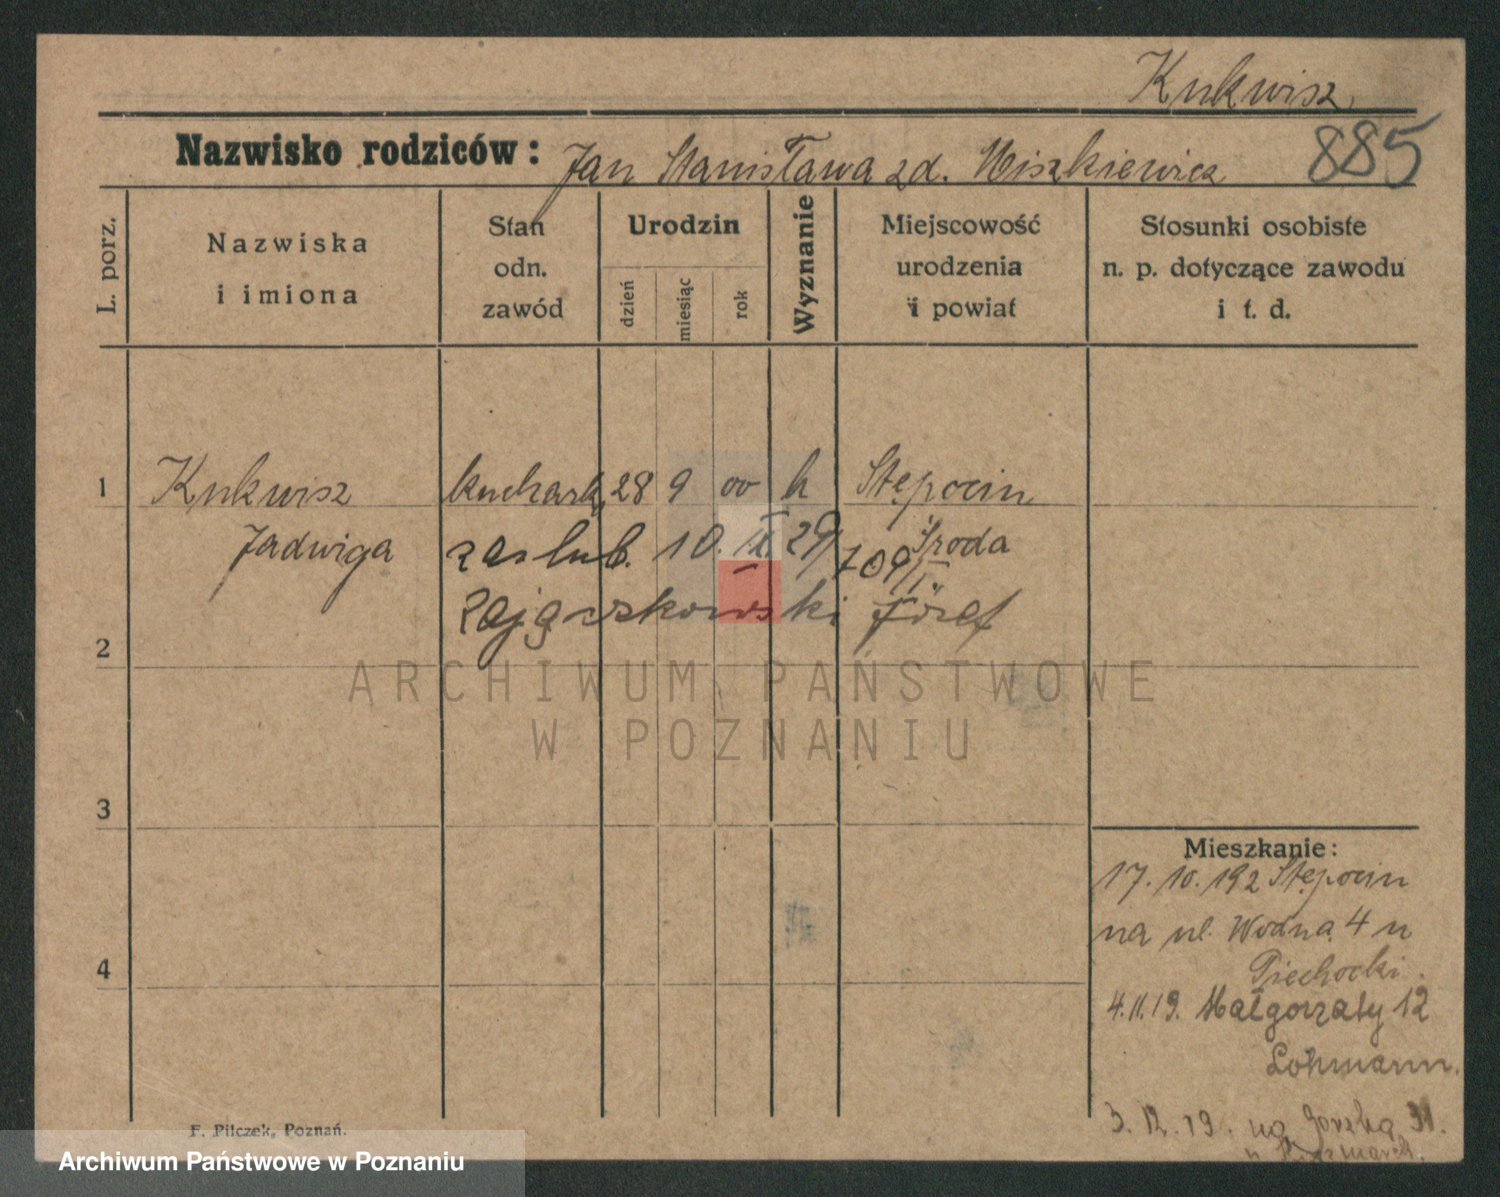 Kukwisz
Nazwisko rodziców: Jan Stanisława zd. Miszkiewicz 885
L. porz.
Nazwiska
i imiona
Stan
odn.
zawód
Urodzin
dzień
miesiąc
rok
Wyznanie
Miejscowość
urodzenia
i powiat
Stosunki osobiste
n. p. dotyczące zawodu
i t. d.
1 Kukwisz kuchark. 28 9 00 k Stępocin
Jadwiga zaslub. 10. IX. 29 709/ Środa
Zajączkowski Józef
2
3
4
Mieszkanie:
17. 10. 192 Stępocin
na ul. Wodna 4 u
Piechocki.
4. 11. 19. Małgorzaty 12
Lohmann.
3. 12. 19. na 31.
F. Pilczek, Poznań.
ARCHIWUM PAŃSTWOWE
W POZNANIU
Archiwum Państwowe w Poznaniu